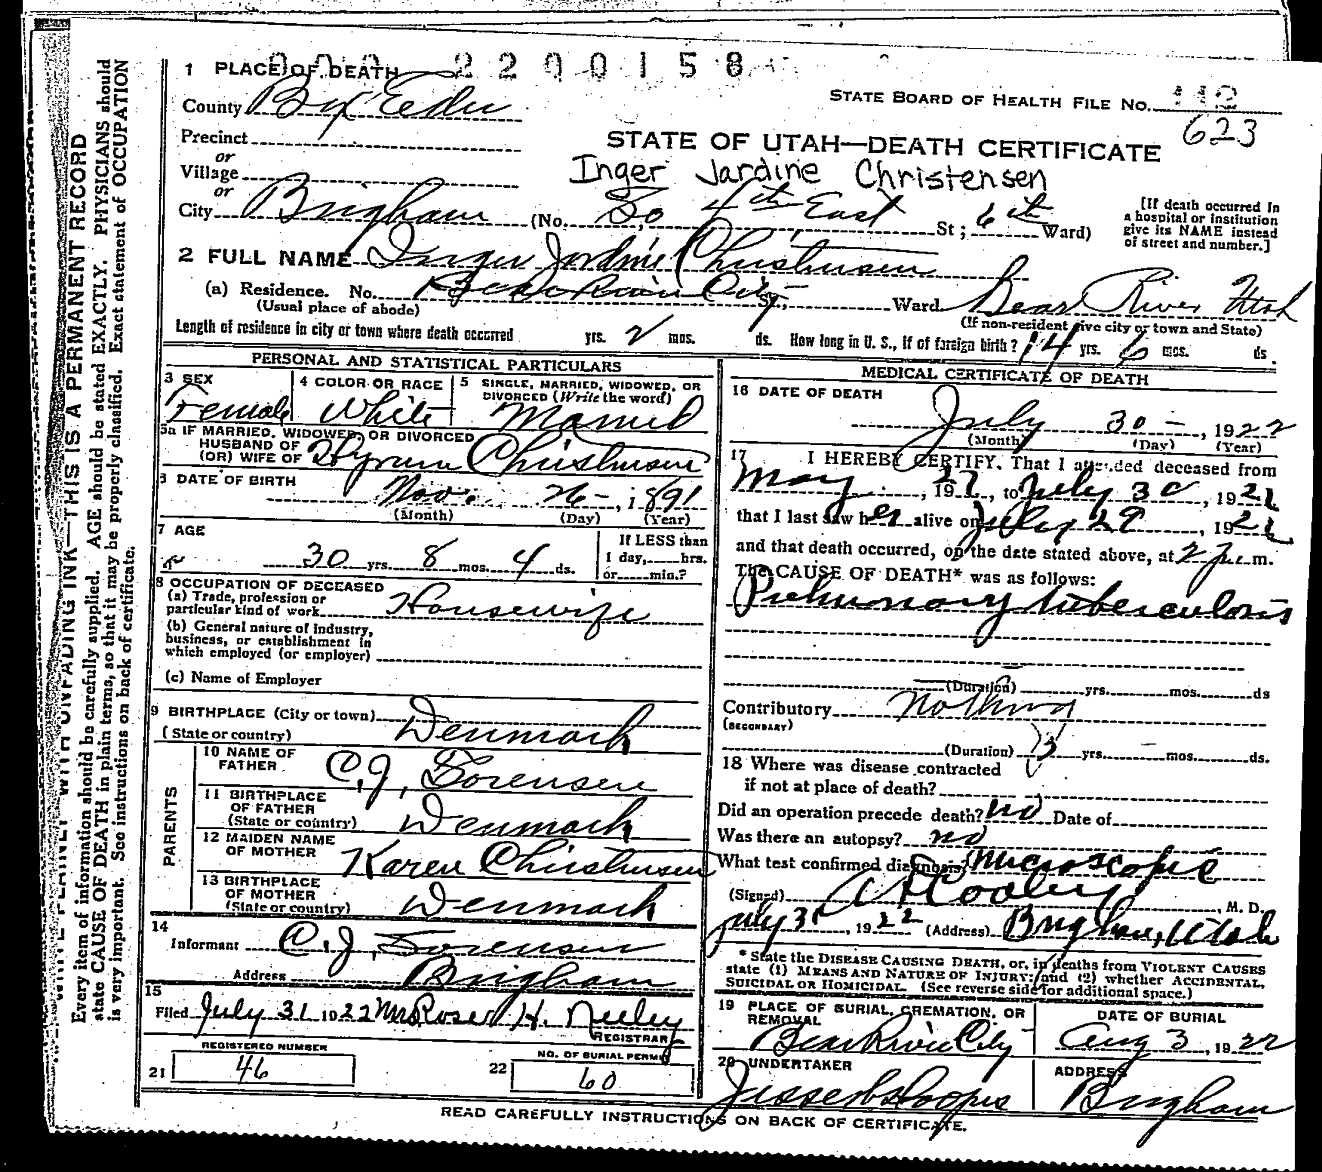 WRITE PLAINLY WITH UNFADING INK—THIS IS A PERMANENT RECORD
Every item of information should be carefully supplied. AGE should be stated EXACTLY. PHYSICIANS should
state CAUSE OF DEATH in plain terms, so that it may be properly classified. Exact statement of OCCUPATION
is very important. See instructions on back of certificate.
2200158
1 PLACE OF DEATH
County Box Elder
STATE BOARD OF HEALTH FILE No. 112
623
Precinct
or
Village
or
STATE OF UTAH—DEATH CERTIFICATE
Inger Jardine Christensen
City Brigham (No. So 4th East St; 6th Ward)
[If death occurred in
a hospital or institution
give its NAME instead
of street and number.]
2 FULL NAME Inger Jordine Christensen
(a) Residence. No. Bear River City St, Ward Bear River Utah
(Usual place of abode) (If non-resident give city or town and State)
Length of residence in city or town where death occurred yrs. 2 mos. ds. How long in U. S., if of foreign birth? 14 yrs. 6 mos. ds.
PERSONAL AND STATISTICAL PARTICULARS
3 SEX
Female
4 COLOR OR RACE
White
5 SINGLE, MARRIED, WIDOWED, OR
DIVORCED (Write the word)
Married
5a IF MARRIED, WIDOWED, OR DIVORCED
HUSBAND OF
(OR) WIFE OF Hyrum Christensen
6 DATE OF BIRTH
Nov. 26 — 1891
(Month) (Day) (Year)
7 AGE
30 yrs. 8 mos. 4 ds.
If LESS than
1 day, hrs.
or min.?
8 OCCUPATION OF DECEASED
(a) Trade, profession or
particular kind of work Housewife
(b) General nature of industry,
business, or establishment in
which employed (or employer)
(c) Name of Employer
9 BIRTHPLACE (City or town)
(State or country) Denmark
PARENTS
10 NAME OF
FATHER C. J. Sorensen
11 BIRTHPLACE
OF FATHER
(State or country) Denmark
12 MAIDEN NAME
OF MOTHER Karen Christensen
13 BIRTHPLACE
OF MOTHER
(State or country) Denmark
14
Informant C. J. Sorensen
Address Brigham
15
Filed July 31 1922 Mrs Rose H. Neeley
REGISTRAR
REGISTERED NUMBER
21 46
NO. OF BURIAL PERMIT
22 60
MEDICAL CERTIFICATE OF DEATH
16 DATE OF DEATH
July 30 —, 1922
(Month) (Day) (Year)
17 I HEREBY CERTIFY, That I attended deceased from
May 27, 1922, to July 30, 1922
that I last saw her alive on July 29, 1922
and that death occurred, on the date stated above, at 2 p. m.
The CAUSE OF DEATH* was as follows:
Pulmonary tuberculosis
(Duration) yrs. mos. ds
Contributory Nothing
(SECONDARY)
(Duration) 3 yrs. — mos. ds.
18 Where was disease contracted
if not at place of death?
Did an operation precede death? no Date of
Was there an autopsy? no
What test confirmed diagnosis? Microscopic
(Signed) A D Cooley M. D.
July 31, 1922 (Address) Brigham, Utah
* State the DISEASE CAUSING DEATH, or, in deaths from VIOLENT CAUSES
state (1) MEANS AND NATURE OF INJURY; and (2) whether ACCIDENTAL,
SUICIDAL OR HOMICIDAL. (See reverse side for additional space.)
19 PLACE OF BURIAL, CREMATION, OR
REMOVAL
Bear River City
DATE OF BURIAL
Aug 3, 1922
20 UNDERTAKER
ADDRESS
Brigham
READ CAREFULLY INSTRUCTIONS ON BACK OF CERTIFICATE.